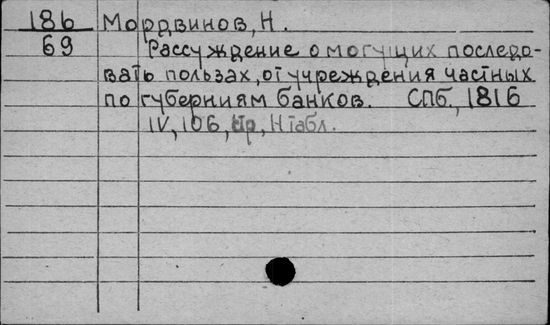 186 Мордвинов, Н.
69 Рассуждение о могущих последо-
вать пользах, от учреждения частных
по губерниям банков. СПб., 1816
IV, 106, табл.